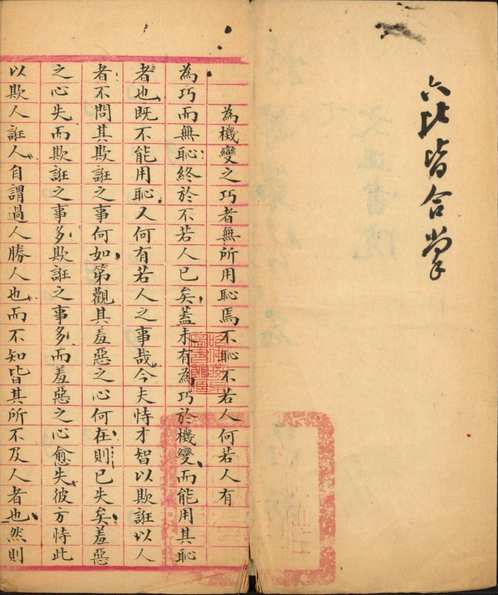 皆合掌
為機變之巧者無所用恥焉不恥不若人何若人有
為巧而無恥終於不若人已矣蓋未有為巧於機變而能用其恥
者也既不能用恥又何有若人之事哉今夫恃才智以欺誑以人
者不問其欺誑之事何如第觀其羞惡之心何在則已失矣羞惡
之心失而欺誑之事多欺誑之事多而羞惡之心愈失彼方恃此
以欺人誑人自謂過人勝人也而不知皆其所不及人者也然則